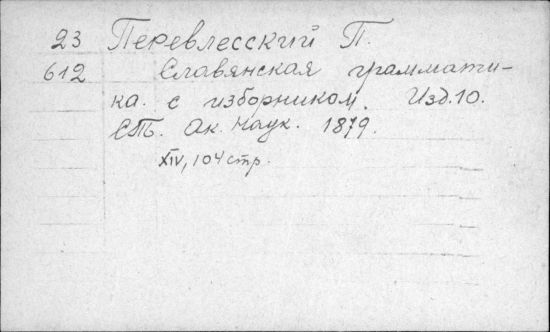 23 Перевлесский П.
612 Славянская граммати-
ка. с изборником. Изд. 10.
СПб. Ак. Наук. 1879.
XIV, 104 стр.